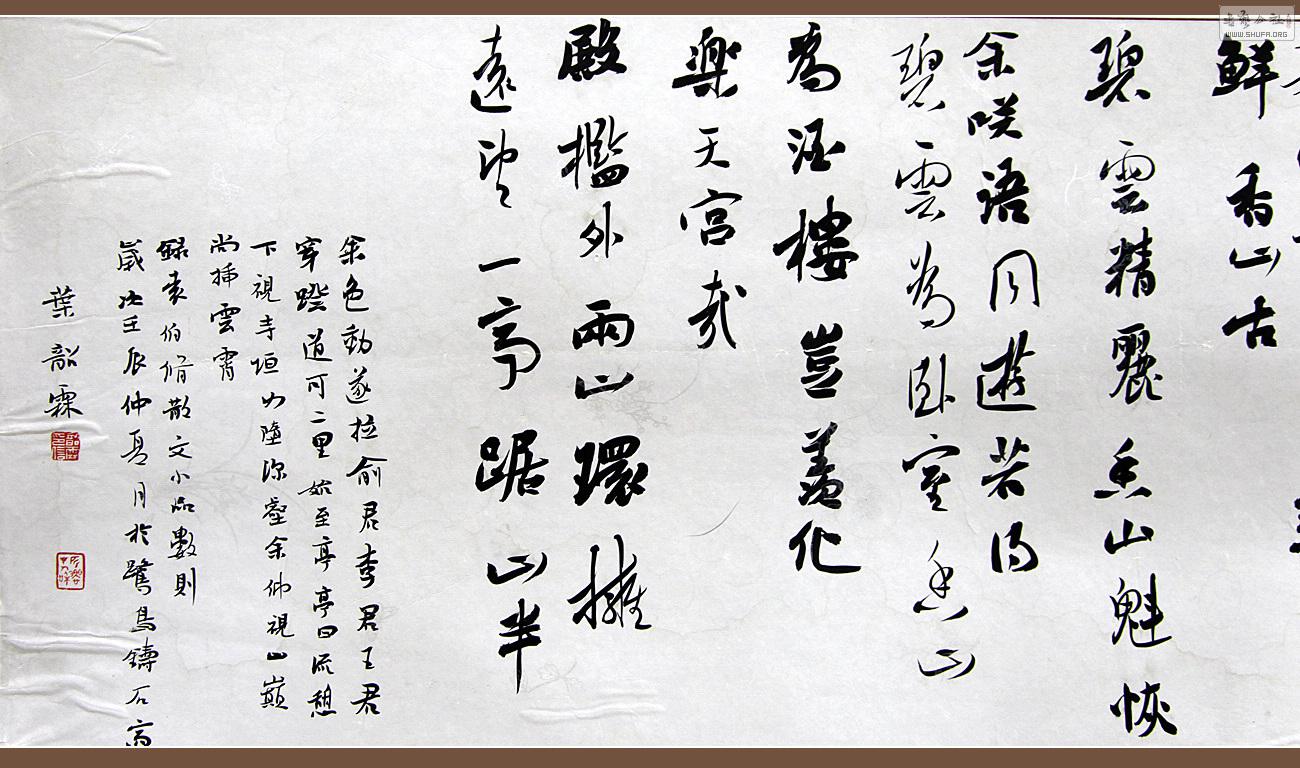 鮮香山古
碧雲精麗香山魁恢
余咲語同遊若得
碧雲為卧室香山
為酒樓豈羨化
樂天宮哉
殿檻外兩山環擁
遠望一亭踞山半
余色動遂拉俞君李君王君
穿蹬道可二里始至亭亭曰流憩
下視寺垣如墮深壑余仰視山巔
尚插雲霄
録袁伯脩散文小品數則
歲次壬辰仲夏月於鷺島鑄石齋
葉韶霖
WWW.SHUFA.ORG